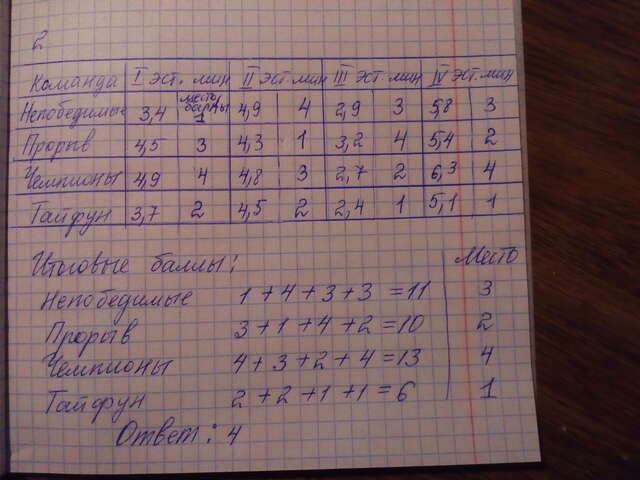 2
Команда I эст. мин II эст мин III эст мин IV эст. мин
Непобедимые 3,4 место/баллы 1 4,9 4 2,9 3 5,8 3
Прорыв 4,5 3 4,3 1 3,2 4 5,4 2
Чемпионы 4,9 4 4,8 3 2,7 2 6,3 4
Тайфун 3,7 2 4,5 2 2,4 1 5,1 1
Итоговые баллы: Место
Непобедимые 1+4+3+3=11 3
Прорыв 3+1+4+2=10 2
Чемпионы 4+3+2+4=13 4
Тайфун 2+2+1+1=6 1
Ответ: 4